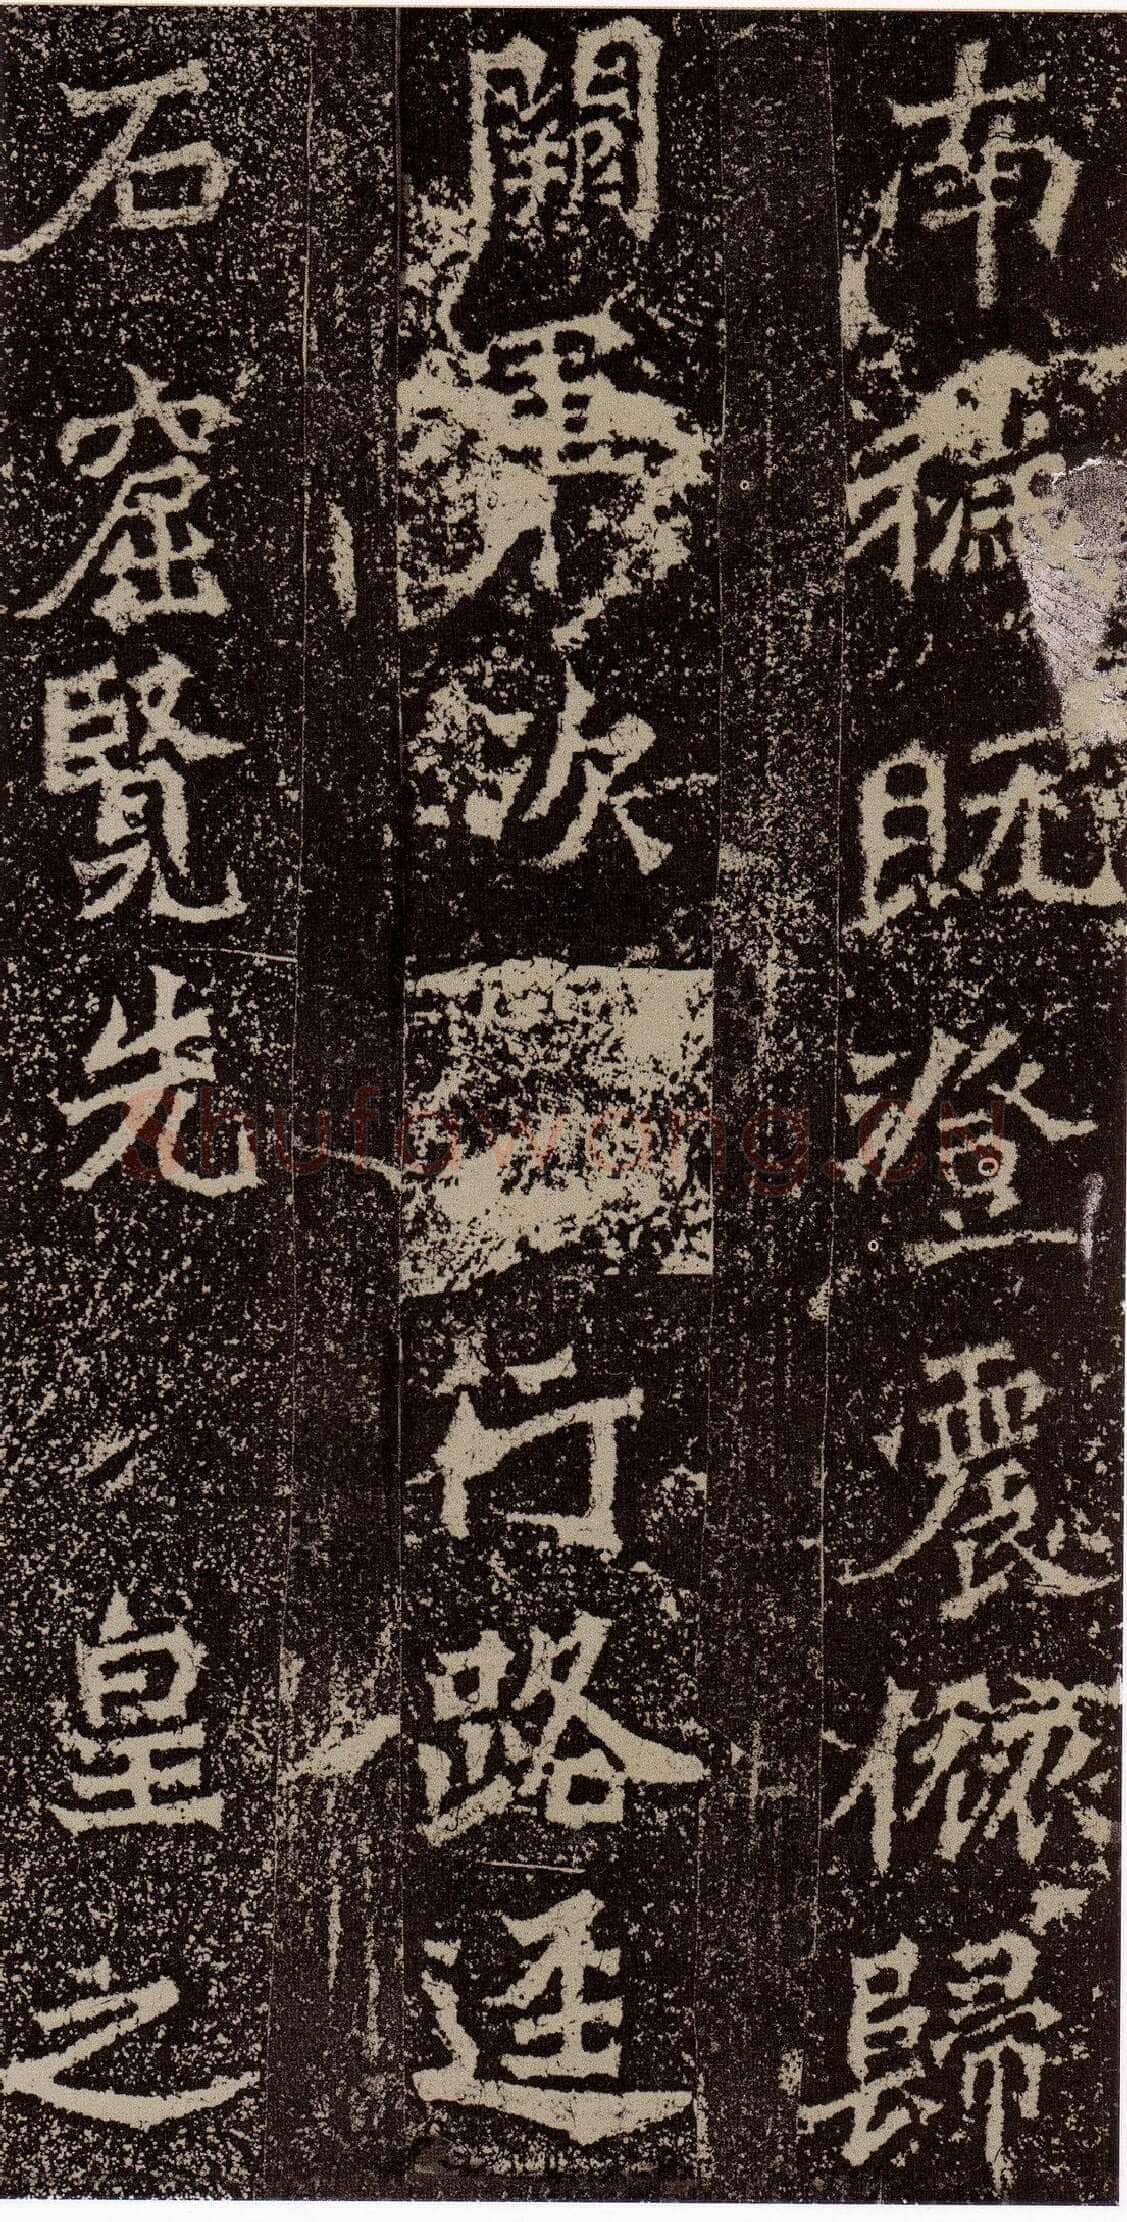 南穢既澄震旅歸
闕軍次行路逕
石窟覽先皇之
shufawang.CN